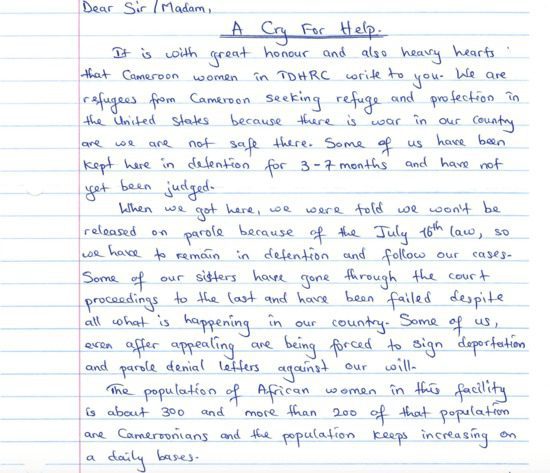 Dear Sir/Madam,
A Cry For Help.
It is with great honour and also heavy hearts
that Cameroon women in TDHRC write to you. We are
refugees from Cameroon seeking refuge and protection in
the United States because there is war in our country
are we are not safe there. Some of us have been
kept here in detention for 3-7 months and have not
yet been judged.
When we got here, we were told we won't be
released on parole because of the July 16th law, so
we have to remain in detention and follow our cases.
Some of our sisters have gone through the court
proceedings to the last and have been failed despite
all what is happening in our country. Some of us,
even after appealing are being forced to sign deportation
and parole denial letters against our will.
The population of African women in this facility
is about 300 and more than 200 of that population
are Cameroonians and the population keeps increasing on
a daily bases.